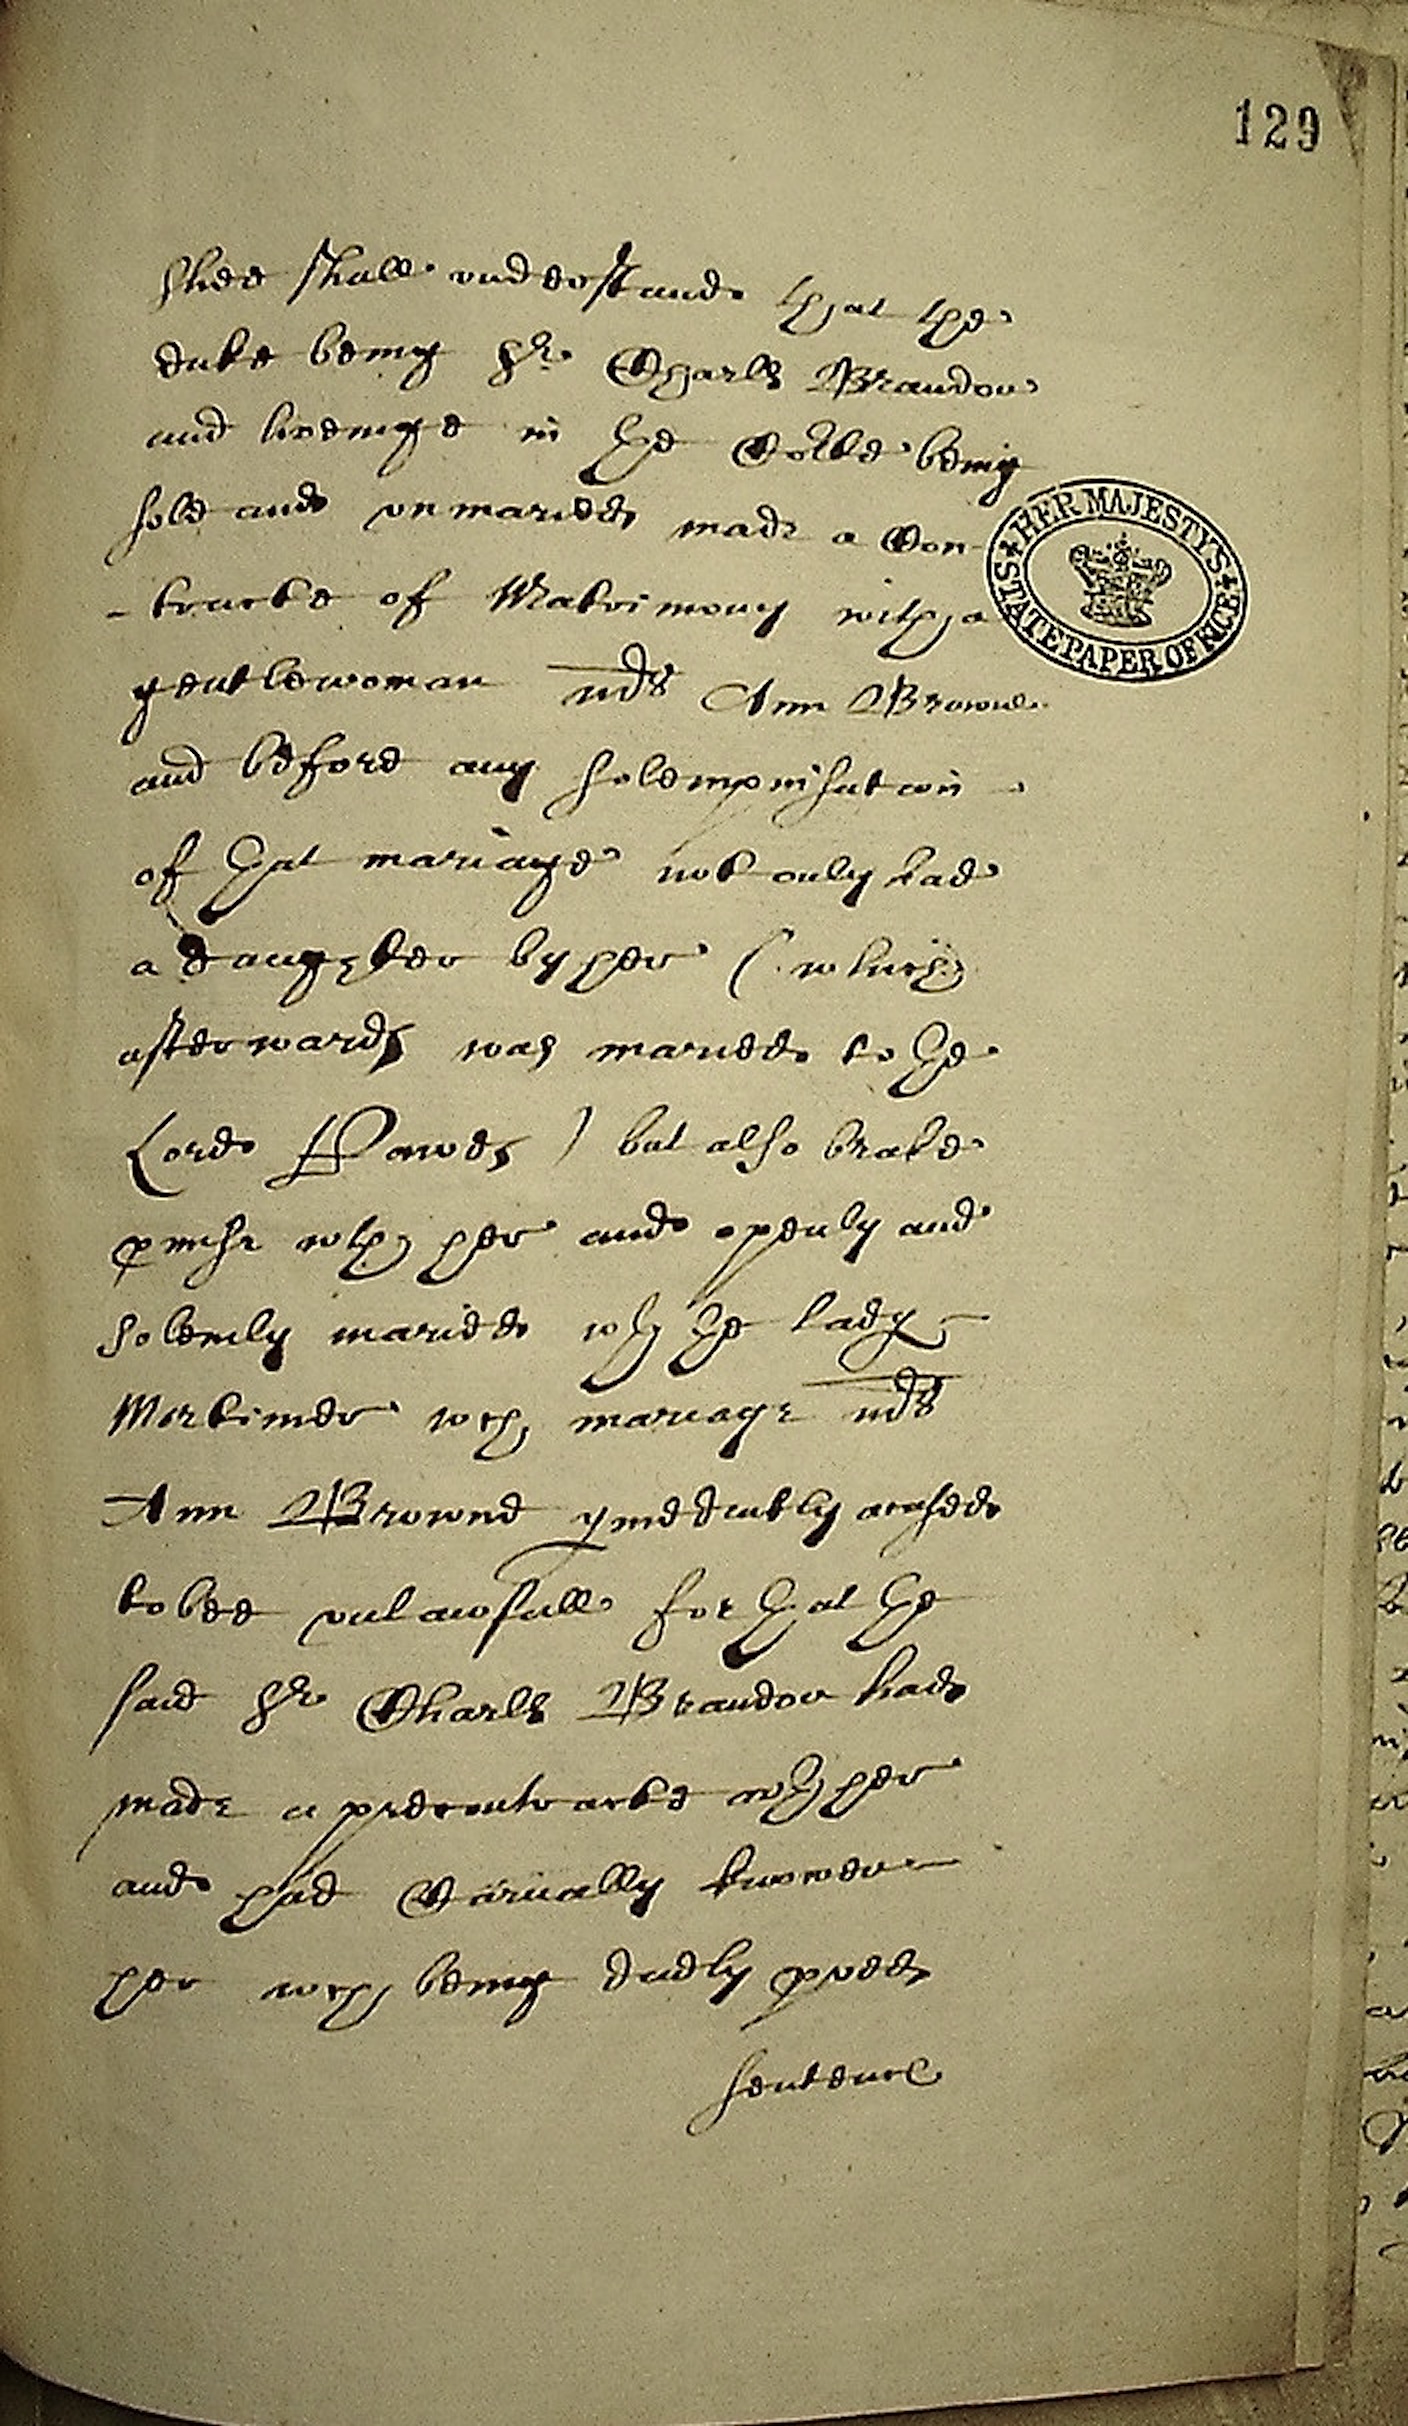 129
shee shall understand that the
duke being Sr Charls Brandon
and liveinge in the Courte being
sole and unmaried made a Con-
HER MAJESTY'S STATE PAPER OFFICE
-tracte of Matrimony with a
gentlewoman Ann Browne
and before any solempnisation
of that mariage not only had
a daughter by her ( which
afterwards was maried to the
Lord Powes ) but also brake
promise wth her and openly and
solemly maried wth the lady
Mortimer wch mariage
Ann Browne accused
to bee unlawfull for that the
said Sr Charls Brandon had
made a precontracte wth her
and had Carnally knowen
her wch being duely proved
sentence